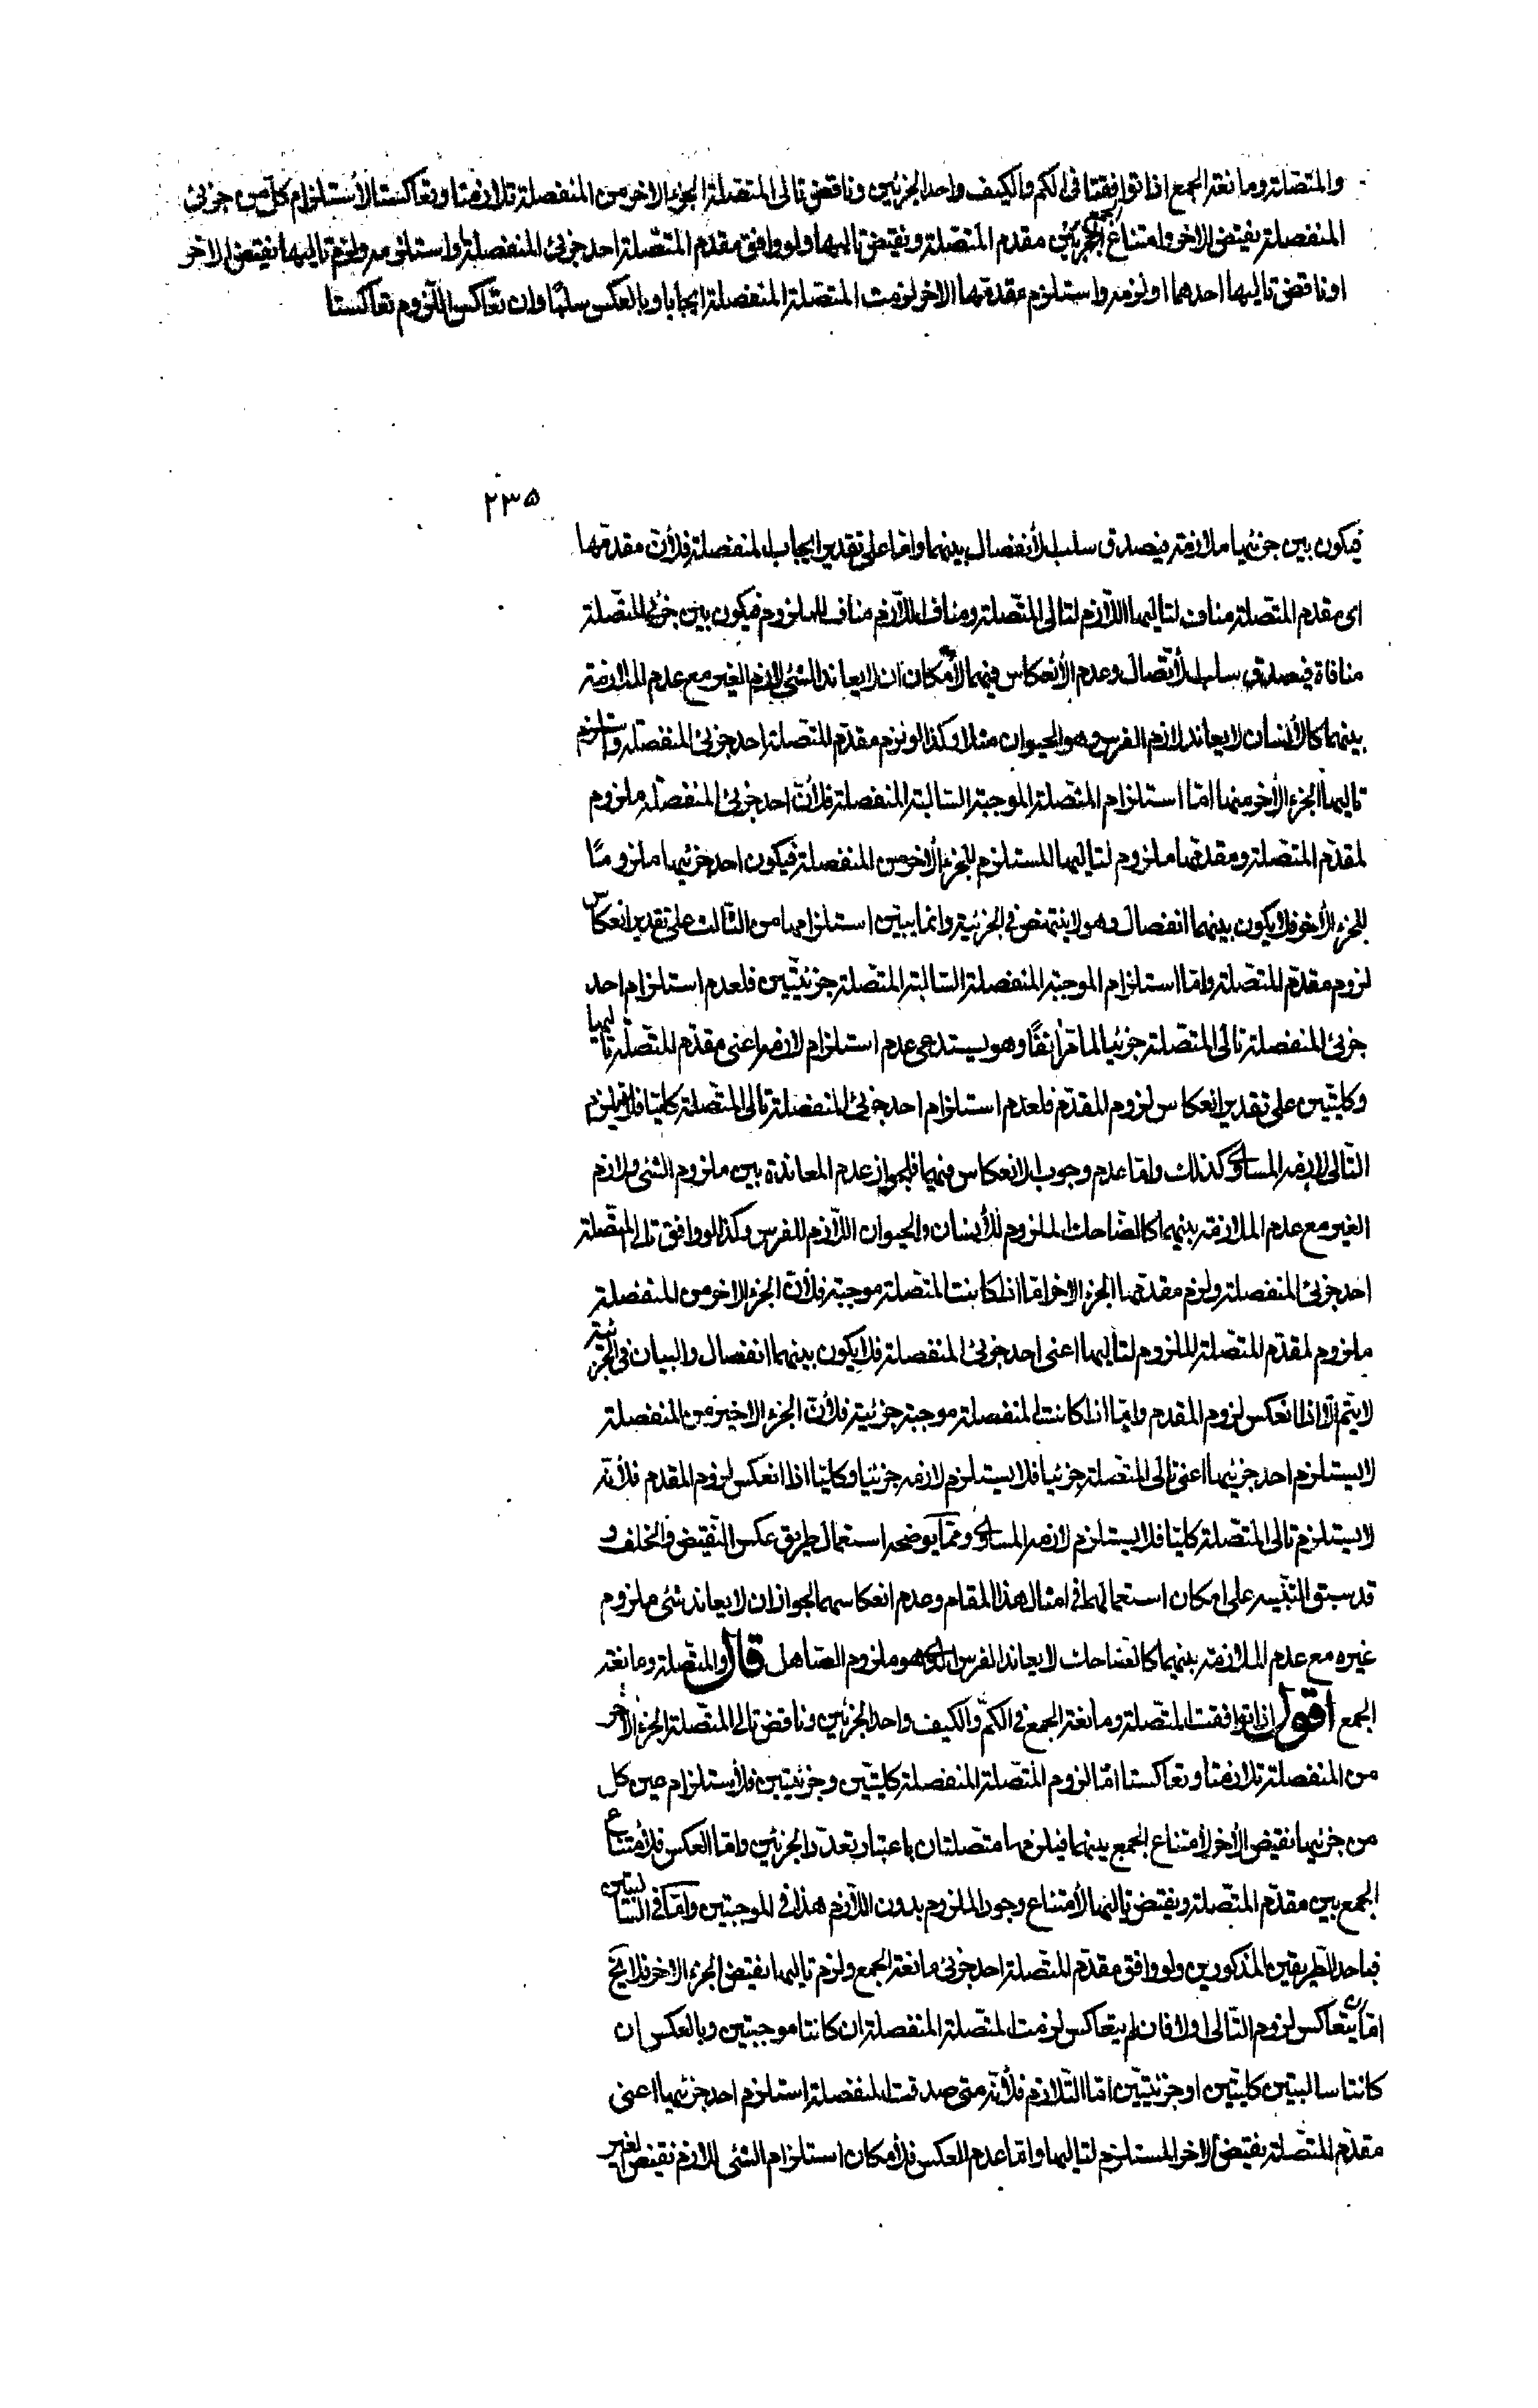 والمتصلة ومانعة الجمع اذا توافقتا فى الكم والكيف واحد الجزئين وناقض تالى المتصلة الجزء الاخر من المنفصلة تلازمتا وتعاكستا لاستلزام كل من جزئى
المنفصلة نقيض الاخر وامتناع الجمع بين مقدم المتصلة ونقيض تاليها ولو وافق مقدم المتصلة احد جزئى المنفصلة او استلزمه ولزم تاليها نقيض الاخر
او ناقض تاليها احدهما او لزمه واستلزم مقدمها الاخر لزمت المتصلة المنفصلة ايجابا وبالعكس سلبًا وان تعاكس اللزوم تعاكستا
٢٣۵
فيكون بين جزئيها ملازمة فيصدق سلب الأنفصال بينهما واما على تقدير ايجاب المنفصلة فلأن مقدمها
اى مقدم المتصلة مناف لتاليها اللازم لتالى المتصلة ومنافى اللازم مناف للملزوم فيكون بين جزئى المتصلة
منافاة فيصدق سلب الأتصال وعدم الأنعكاس فيهما لأمكان ان لا يعاند الشئ لازم الغير مع عدم الملازمة
بينهما كالأنسان لا يعاند لازم الفرس وهو الحيوان مثلا وكذا لو لزم مقدم المتصلة احد جزئى المنفصلة واستلزم
تاليها الجزء الأخر منها امّا استلزام المتصلة الموجبة السالبة المنفصلة فلأنّ احد جزئى المنفصلة ملزوم
لمقدم المتصلة ومقدمها ملزوم لتاليها المستلزم للجزء الأخر من المنفصلة فيكون احد جزئيها ملزومًا
للجزء الأخر فلا يكون بينهما انفصال وهو لا ينتهض فى الجزئية وانما يبين استلزامها من الثالث على تقدير انعكاس
لزوم مقدم المتصلة واما استلزام الموجبة المنفصلة السالبة المتصلة جزئيتين فلعدم استلزام احد
جزئى المنفصلة تالى المتصلة جزئيا لما مرّ انفًا وهو يستدعى عدم استلزام لازمه اعنى مقدم المتصلة تاليها
وكليتين على تقدير انعكاس لزوم المقدم فلعدم استلزام احد جزئى المنفصلة تالى المتصلة كليا فلا يلزم
التالى لازمه المساوى كذلك واما عدم وجوب الانعكاس فيهما فلجواز عدم المعاندة بين ملزوم الشئ ولازم
الغير مع عدم الملازمة بينهما كالضاحك الملزوم للأنسان والحيوان اللازم للفرس وكذا لو وافق تالى المتصلة
احد جزئى المنفصلة ولزم مقدمها الجزء الاخر اما اذا كانت المتصلة موجبة فلأنّ الجزء الاخر من المنفصلة
ملزوم لمقدم المتصلة الملزوم لتاليها اعنى احد جزئى المنفصلة فلا يكون بينهما انفصال والبيان فى الجزئية
لا يتم الّا اذا انعكس لزوم المقدم وامّا اذا كانت المنفصلة موجبة جزئية فلأنّ الجزء الاخير من المنفصلة
لا يستلزم احد جزئيها اعنى تالى المتصلة جزئيا فلا يستلزم لازمه جزئيا وكليا اذا انعكس لزوم المقدم فلأنّه
لا يستلزم تالى المتصلة كليا فلا يستلزم لازمه المساوى وممّا يوضحه استعمال طريق عكس النقيض والخلف و
قد سبق التنبيه على امكان استعمالهما فى امثال هذا المقام وعدم انعكاسهما لجواز ان لا يعاند شئ ملزوم
غيره مع عدم الملازمة بينهما كالضاحك لا يعاند الفرس الذى هو ملزوم الصّاهل قال والمتصلة ومانعة
الجمع اقول اذا توافقت المتصلة ومانعة الجمع فى الكمّ والكيف واحد الجزئين وناقض تالى المتصلة الجزء الأخر
من المنفصلة تلازمتا وتعاكستا امّا لزوم المتصلة المنفصلة كليتين وجزئيتين فلأستلزام عين كل
من جزئيها نقيض الأخر لأمتناع الجمع بينهما فيلزمها متصلتان باعتبار تعدد الجزئين واما العكس فلأمتناع
الجمع بين مقدم المتصلة ونقيض تاليها لأمتناع وجود الملزوم بدون اللازم هذا فى الموجبتين وامّا فى السالبتين
فباحد الطريقين المذكورين ولو وافق مقدم المتصلة احد جزئى مانعة الجمع ولزم تاليها نقيض الجزء الاخر فلا يخ
امّا ان يتعاكس لزوم التالى اولا فان لم يتعاكس لزمت المتصلة المنفصلة ان كانتا موجبتين وبالعكس ان
كانتا سالبتين كليتين او جزئيتين اما التلازم فلأنّه متى صدقت المنفصلة استلزم احد جزئيها اعنى
مقدم المتصلة نقيض الاخر المستلزم لتاليها واما عدم العكس فلأمكان استلزام الشئ للازم نقيض الغير